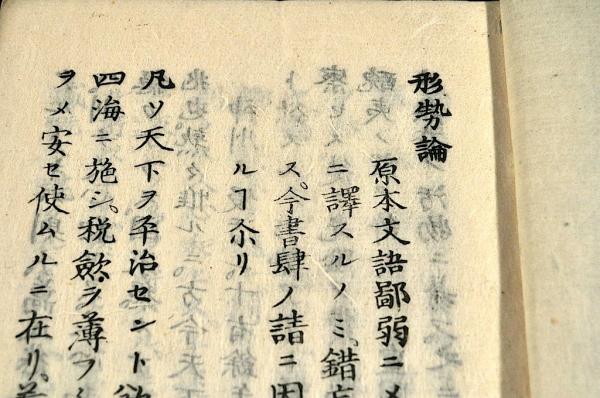 形勢論
原本文語鄙弱ニメ
ニ譯スルノミ、錯
ス。今書肆ノ請ニ因
ルヿ尒リ
凡ソ天下ヲ平治セント欲
四海ニ施シ、税斂ヲ薄フシ
ヲメ安セ使ムルニ在リ。